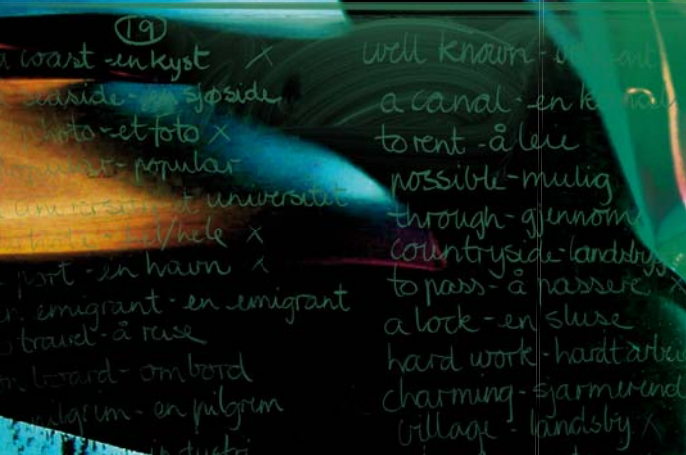 19
a coast - en kyst X
seaside - en sjøside
photo - et foto X
popular - popular
universitet
/hele X
port - en havn X
en emigrant - en emigrant
travel - å reise
on board - ombord
pilgrim - en pilgrim
industri
well known -
a canal - en kanal
to rent - å leie
possible - mulig
through - gjennom
countryside - landsby
to pass - å passere X
a lock - en sluse
hard work - hardt arbei
charming - sjarmerend
village - landsby X